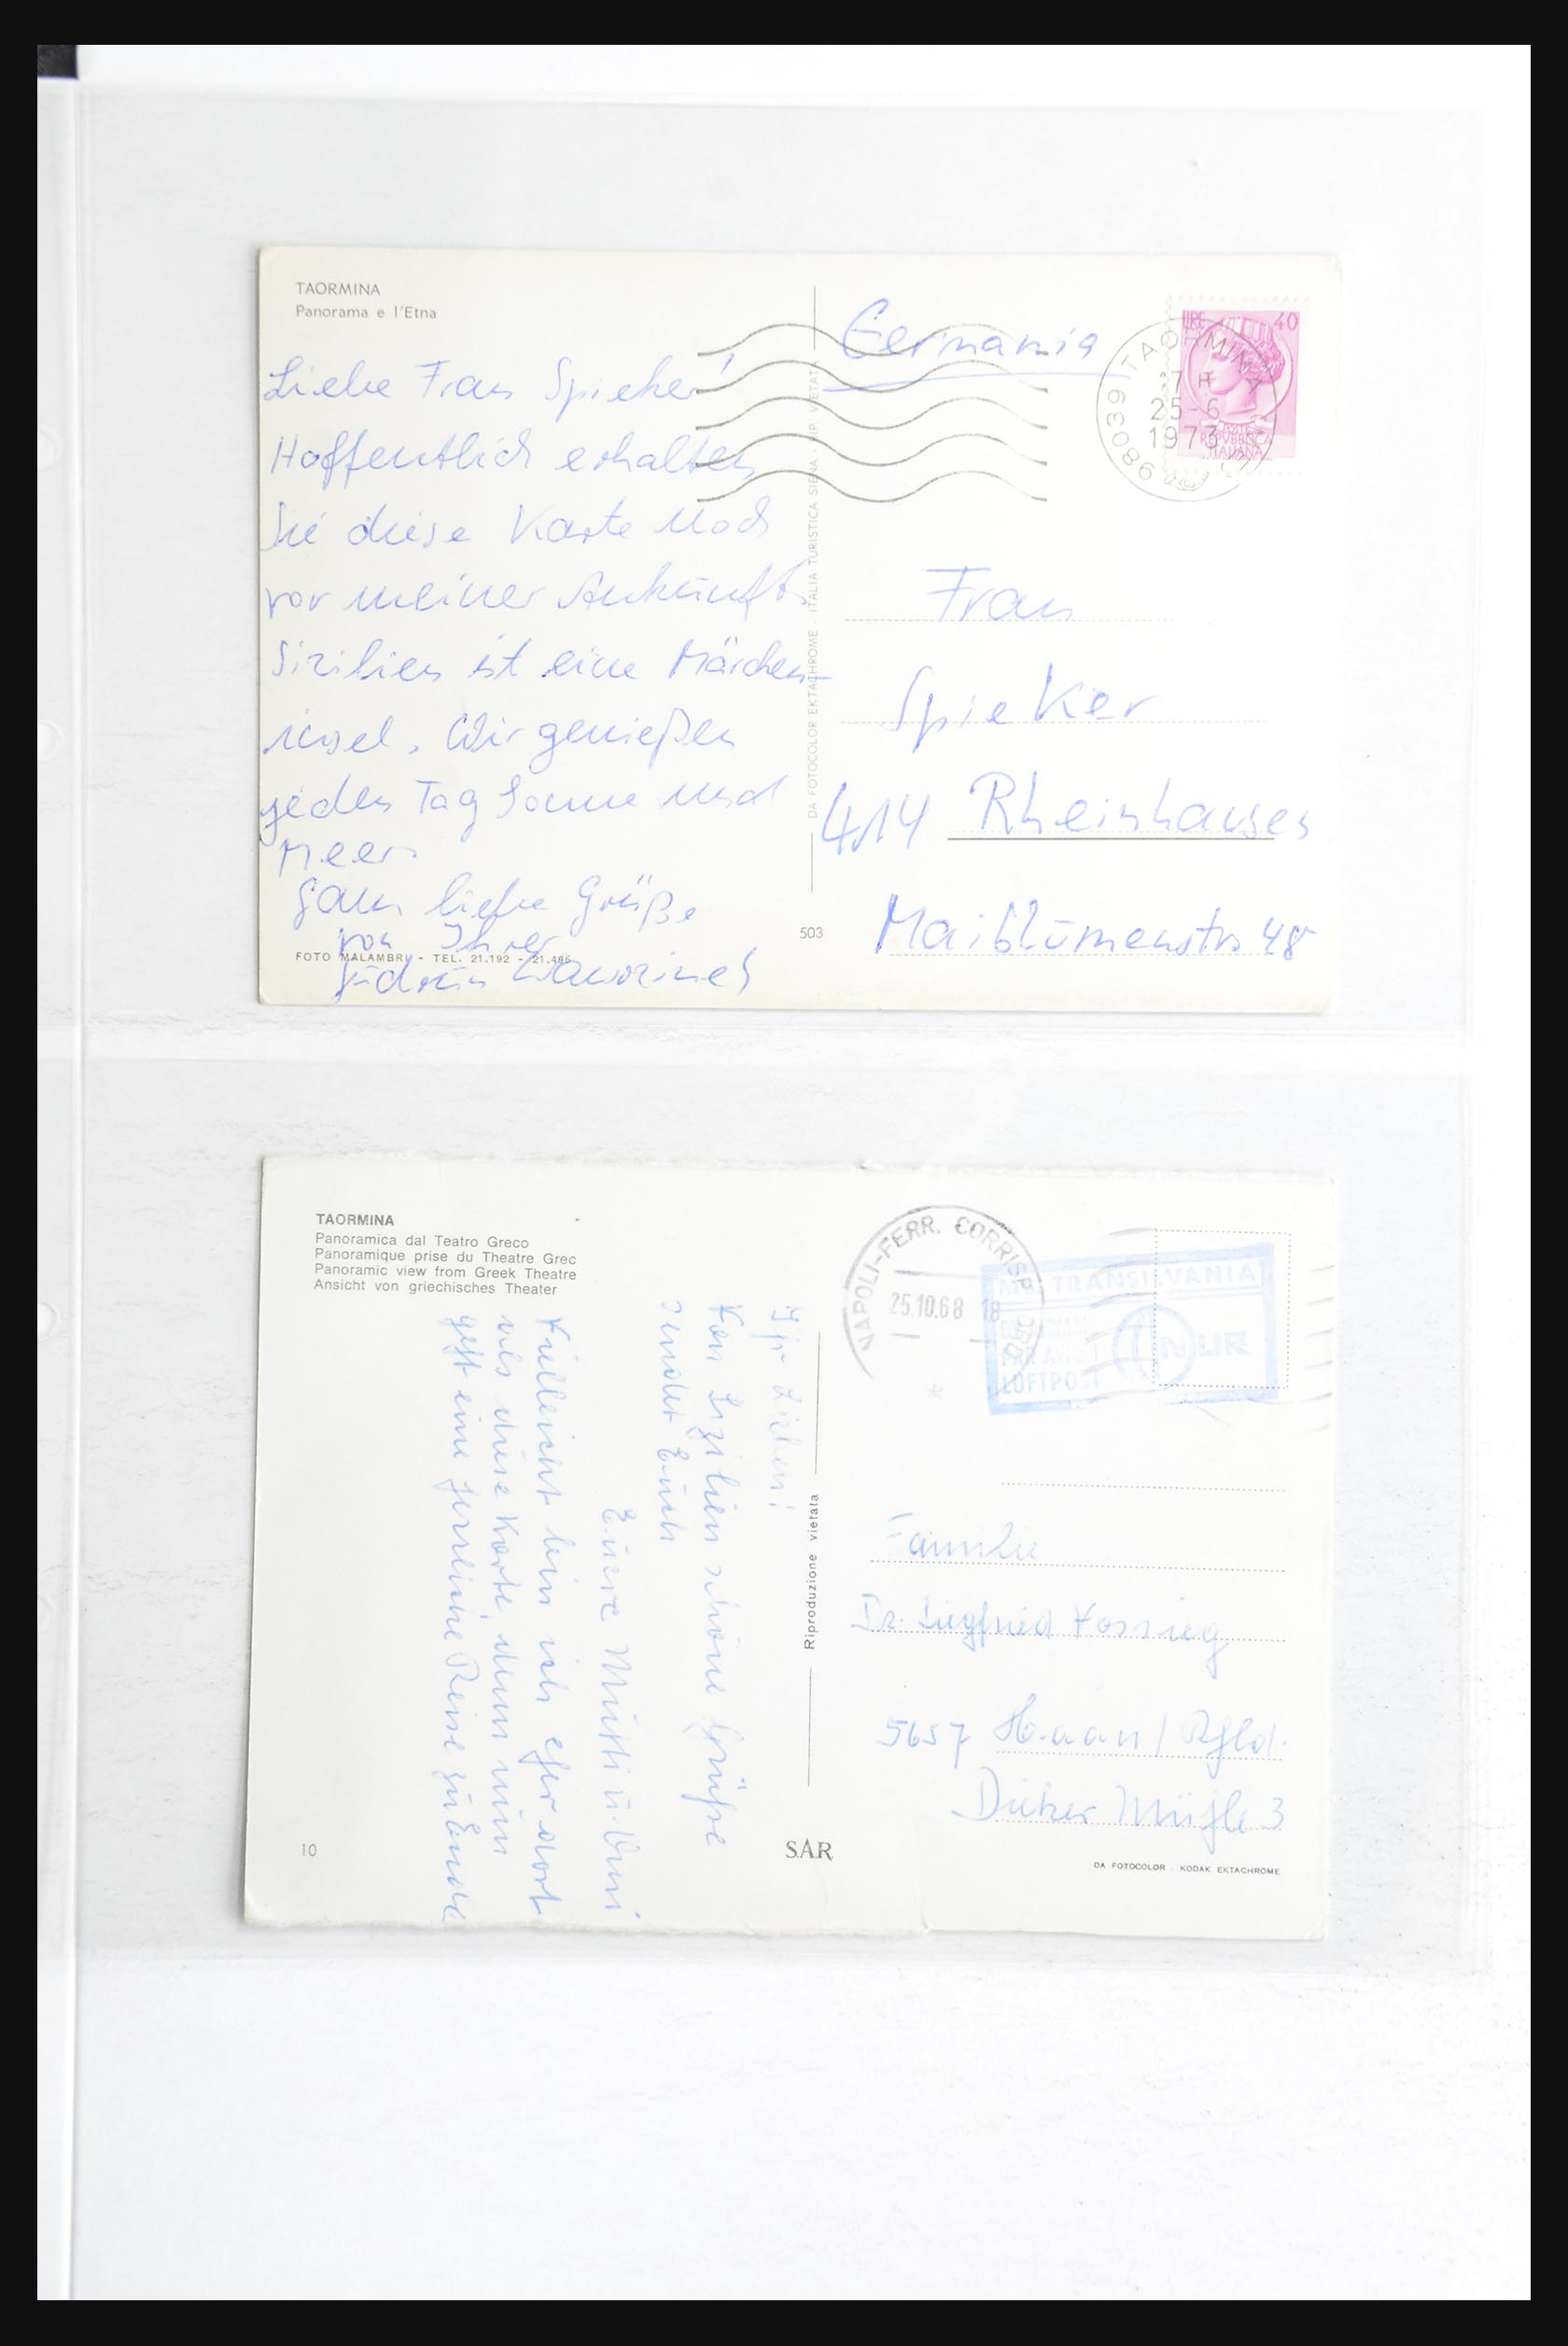 TAORMINA
Panorama e l'Etna
Liebe Frau Spieker!
Hoffentlich erhalten
Sie diese Karte noch
vor meiner Ankunft.
Sizilien ist eine Märchen-
insel. Wir genießen
jeden Tag Sonne und
Meer.
Ganz liebe Grüße
von Ihrer
FOTO MALAMBRI - TEL. 21.192 - 21.486
503
DA FOTOCOLOR EKTACHROME - ITALIA TURISTICA SIENA - RIP VIETATA
Germania
LIRE 40
POSTE
REPVBBLICA
ITALIANA
98039 TAORMINA
25-6
1973
Frau
Spieker
414 Rheinhausen
Maiblümenstr 48
TAORMINA
Panoramica dal Teatro Greco
Panoramique prise du Theatre Grec
Panoramic view from Greek Theatre
Ansicht von griechisches Theater
Ihr Lieben!
Von Sizilien schöne Grüße
sendet Euch
Euere Mutti u. Omi
Vielleicht bin ich eher dort
als diese Karte, denn nun
geht eine herrliche Reise zu Ende
10
Riproduzione vietata
SAR
NAPOLI-FERR. CORRISP.
25.10.68 18
M/S TRANSILVANIA
PAR AVION
LUFTPOST
NUR
Familie
Dr. Siegfried Vossieg
5657 Haan / Rhld.
Dieker Mühle 3
DA FOTOCOLOR - KODAK EKTACHROME